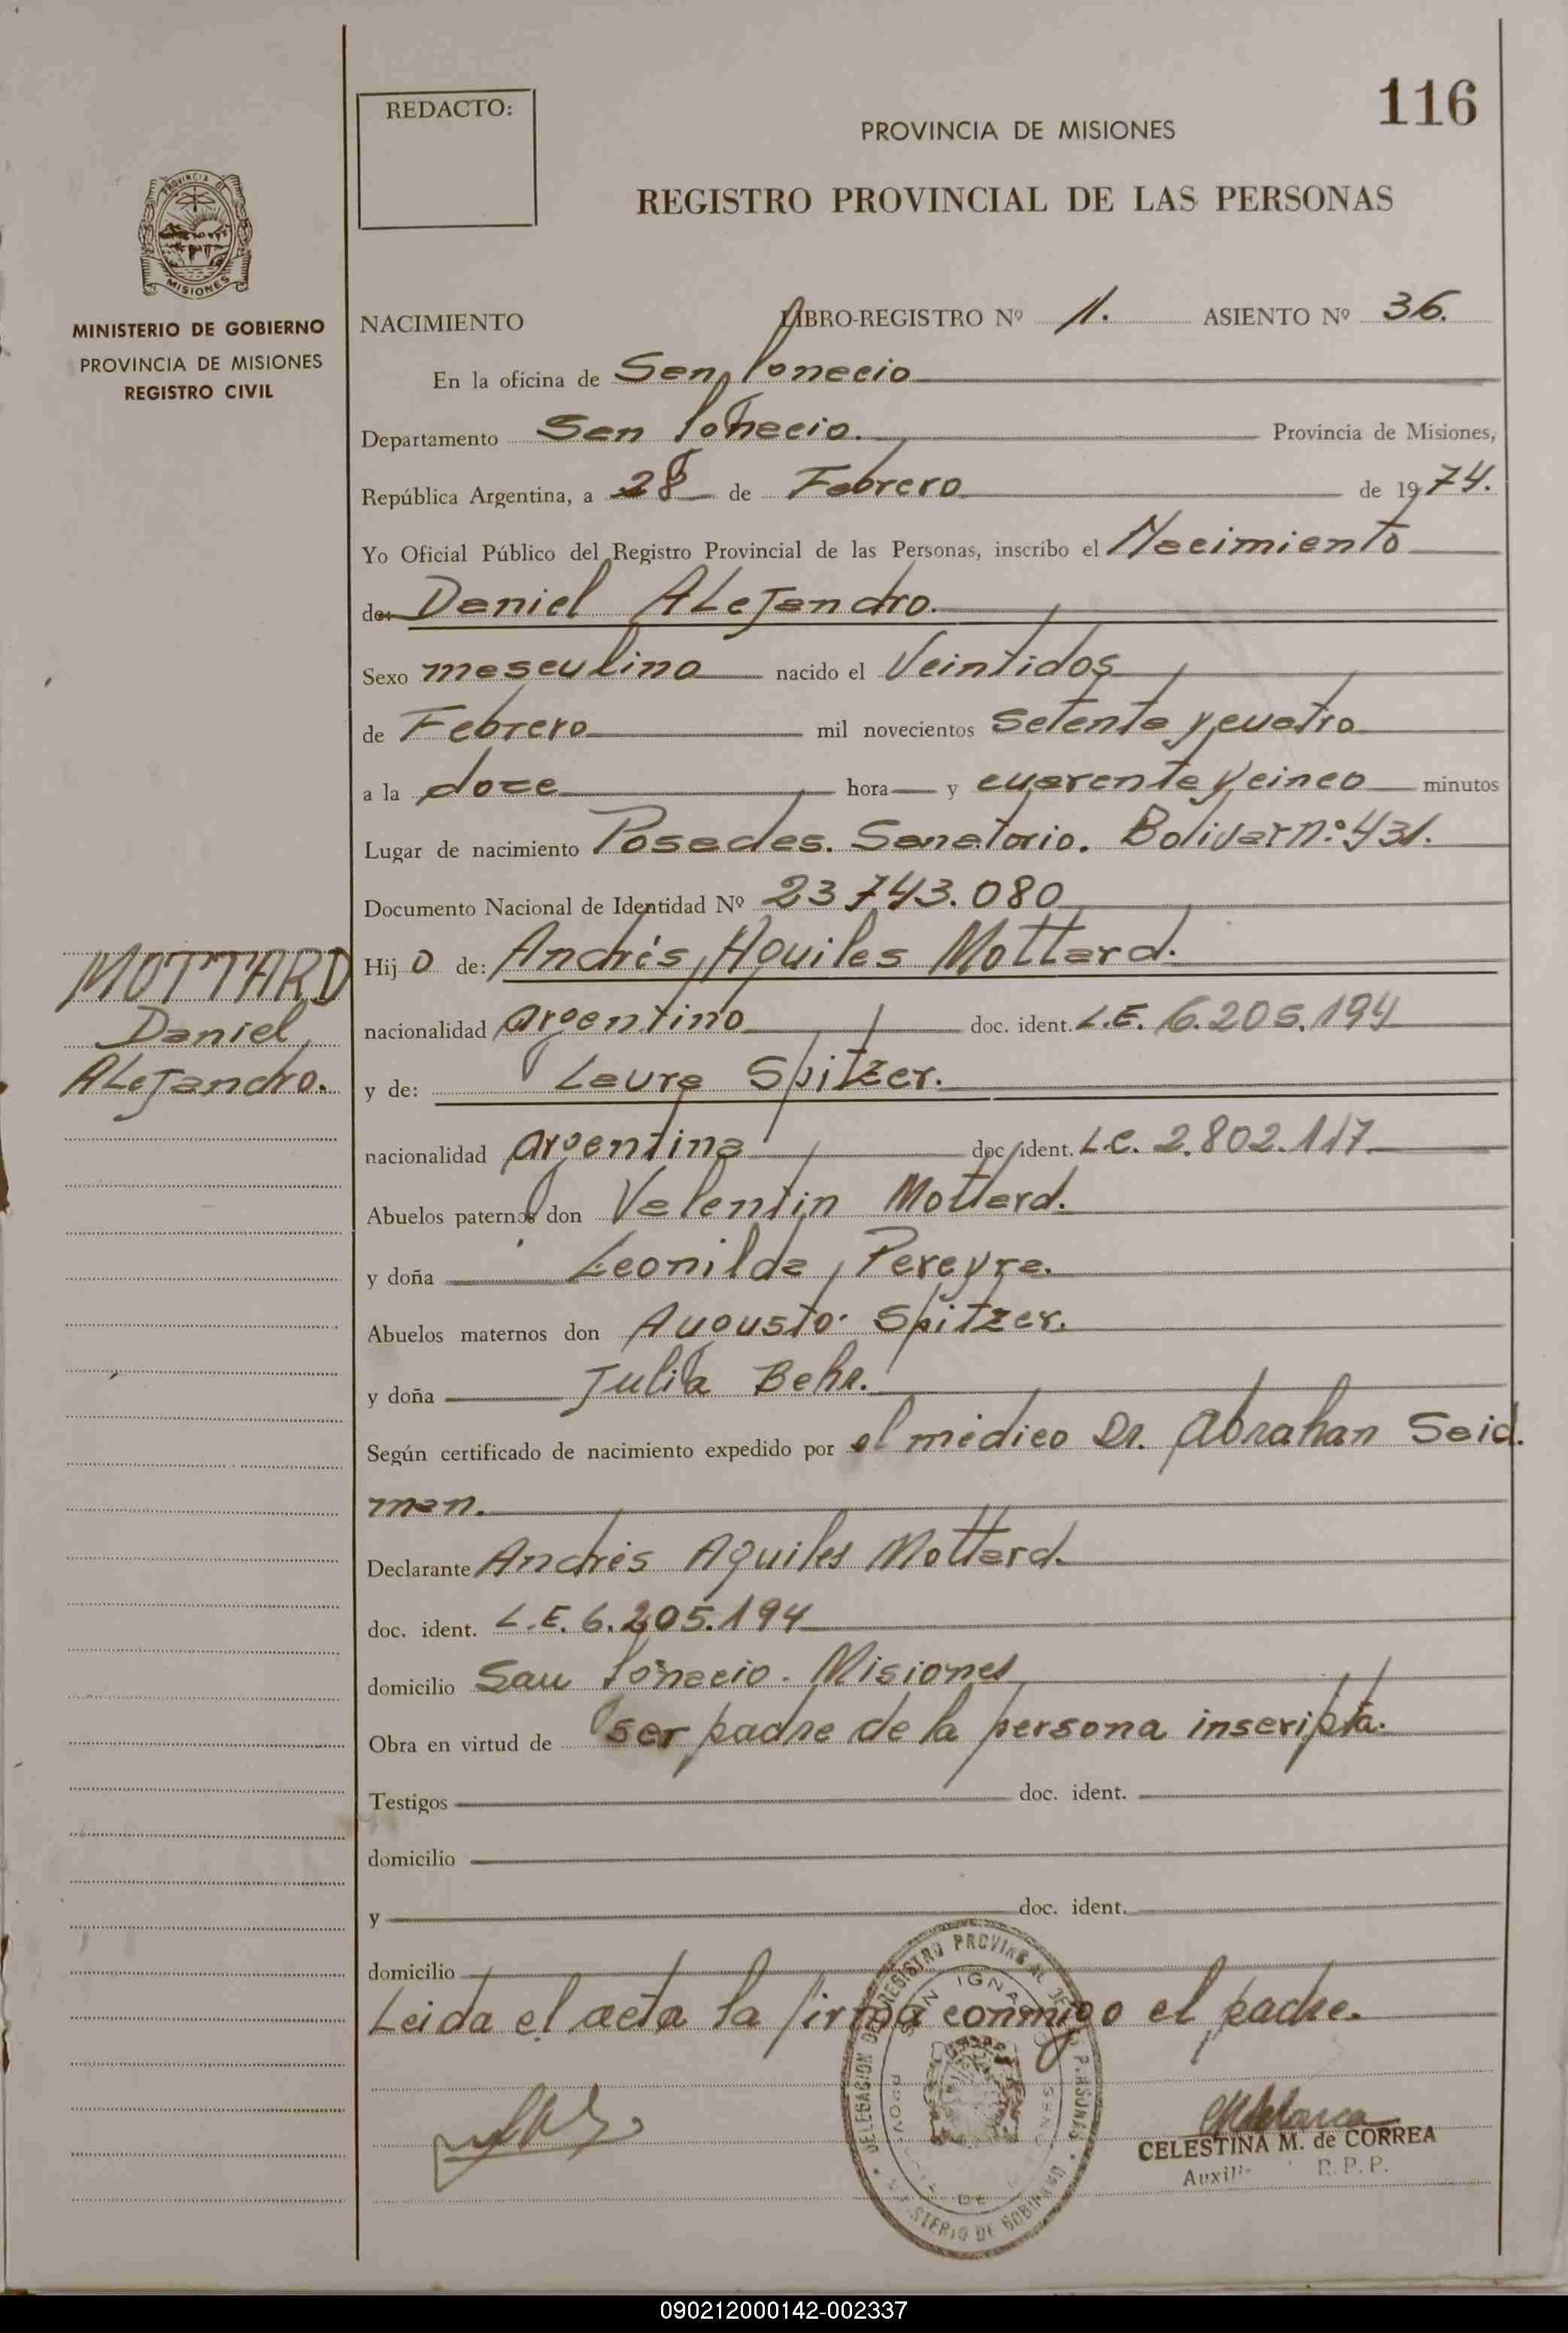 116
REDACTO:
PROVINCIA DE MISIONES
REGISTRO PROVINCIAL DE LAS PERSONAS
PROVINCIA DE
MISIONES
MINISTERIO DE GOBIERNO
PROVINCIA DE MISIONES
REGISTRO CIVIL
NACIMIENTO LIBRO-REGISTRO Nº 11. ASIENTO Nº 36.
En la oficina de San Ignacio
Departamento San Ignacio. Provincia de Misiones,
República Argentina, a 28 de Febrero de 1974.
Yo Oficial Público del Registro Provincial de las Personas, inscribo el Nacimiento
de: Daniel ALeJandro.
Sexo masculino nacido el Veintidos
de Febrero mil novecientos setenta y cuatro
a la doce hora y cuarenta y cinco minutos
Lugar de nacimiento Posadas. Sanatorio. Bolivar nº 431.
Documento Nacional de Identidad Nº 23743.080
Hijo de: Andrés Aquiles Mottard.
nacionalidad argentino doc. ident. L.E. 6.205.194
y de: Laura Spitzer.
nacionalidad argentina doc. ident. L.C. 2.802.117
Abuelos paternos don Valentin Mottard.
y doña Leonilda Pereyra.
Abuelos maternos don Augusto Spitzer.
y doña Julia Behr.
Según certificado de nacimiento expedido por el médico Dr. Abrahan Seid.
man.
Declarante Andrés Aquiles Mottard.
doc. ident. L.E. 6.205.194
domicilio San Ignacio. Misiones
Obra en virtud de ser padre de la persona inscripta.
Testigos doc. ident.
domicilio
y doc. ident.
domicilio
Leida el acta la firma conmigo el padre.
MOTTARD
Daniel
ALeJandro.
DELEGACION DEL REGISTRO PROVINCIAL DE LAS PERSONAS
SAN IGNACIO
MINISTERIO DE GOBIERNO
CELESTINA M. de CORREA
R.P.P.
090212000142-002337